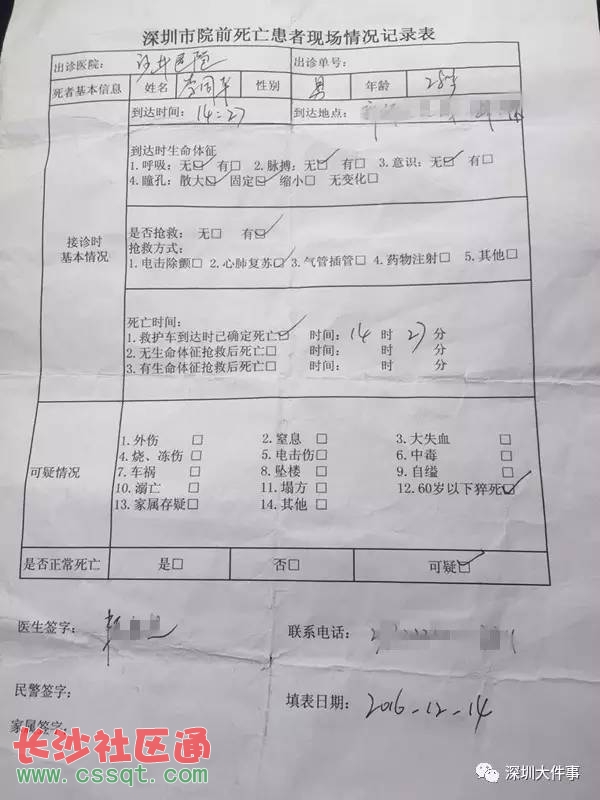 深圳市院前死亡患者现场情况记录表
出诊医院： 沙井医院 出诊单号：
死者基本信息 姓名 性别 男 年龄 28岁
到达时间： 14:27 到达地点：
到达时生命体征
1.呼吸：无☑ 有□ 2.脉搏：无☑ 有□ 3.意识：无☑ 有□
4.瞳孔：散大☑ 固定☑ 缩小□ 无变化□
接诊时
基本情况
是否抢救： 无□ 有☑
抢救方式：
1.电击除颤□ 2.心肺复苏☑ 3.气管插管□ 4.药物注射□ 5.其他□
死亡时间：
1.救护车到达时已确定死亡☑ 时间： 14 时 27 分
2.无生命体征抢救后死亡□ 时间： 时 分
3.有生命体征抢救后死亡□ 时间： 时 分
可疑情况
1.外伤 □ 2.窒息 □ 3.大失血 □
4.烧、冻伤 □ 5.电击伤□ 6.中毒 □
7.车祸 □ 8.坠楼 □ 9.自缢 □
10.溺亡 □ 11.塌方 □ 12.60岁以下猝死☑
13.家属存疑□ 14.其他 □
是否正常死亡 是□ 否□ 可疑☑
医生签字： 联系电话：
民警签字： 填表日期： 2016-12-14
家属签字：
长沙社区通
www.cssqt.com
深圳大件事